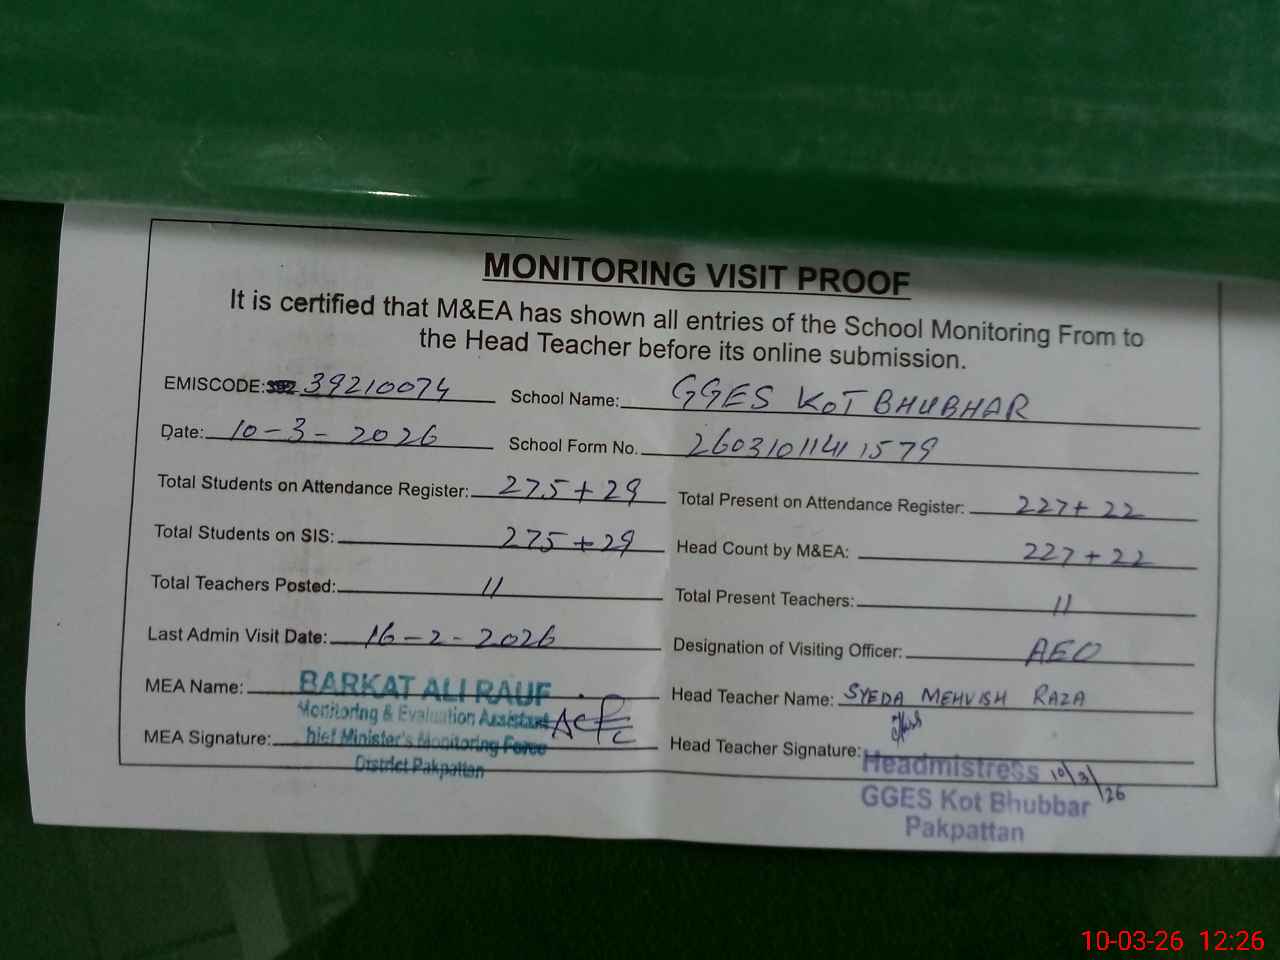 MONITORING VISIT PROOF
It is certified that M&EA has shown all entries of the School Monitoring From to
the Head Teacher before its online submission.
EMISCODE: 39210074 School Name: GGES KOT BHUBHAR
Date: 10-3-2026 School Form No. 2603101141579
Total Students on Attendance Register: 275+29 Total Present on Attendance Register: 227+22
Total Students on SIS: 275+29 Head Count by M&EA: 227+22
Total Teachers Posted: 11 Total Present Teachers: 11
Last Admin Visit Date: 16-2-2026 Designation of Visiting Officer: AEO
MEA Name: BARKAT ALI RAUF Head Teacher Name: SYEDA MEHVISH RAZA
Monitoring & Evaluation Assistant
MEA Signature: hief Minister's Monitoring Force Head Teacher Signature:
District Pakpattan
Headmistress 10/3/26
GGES Kot Bhubbar
Pakpattan
10-03-26 12:26